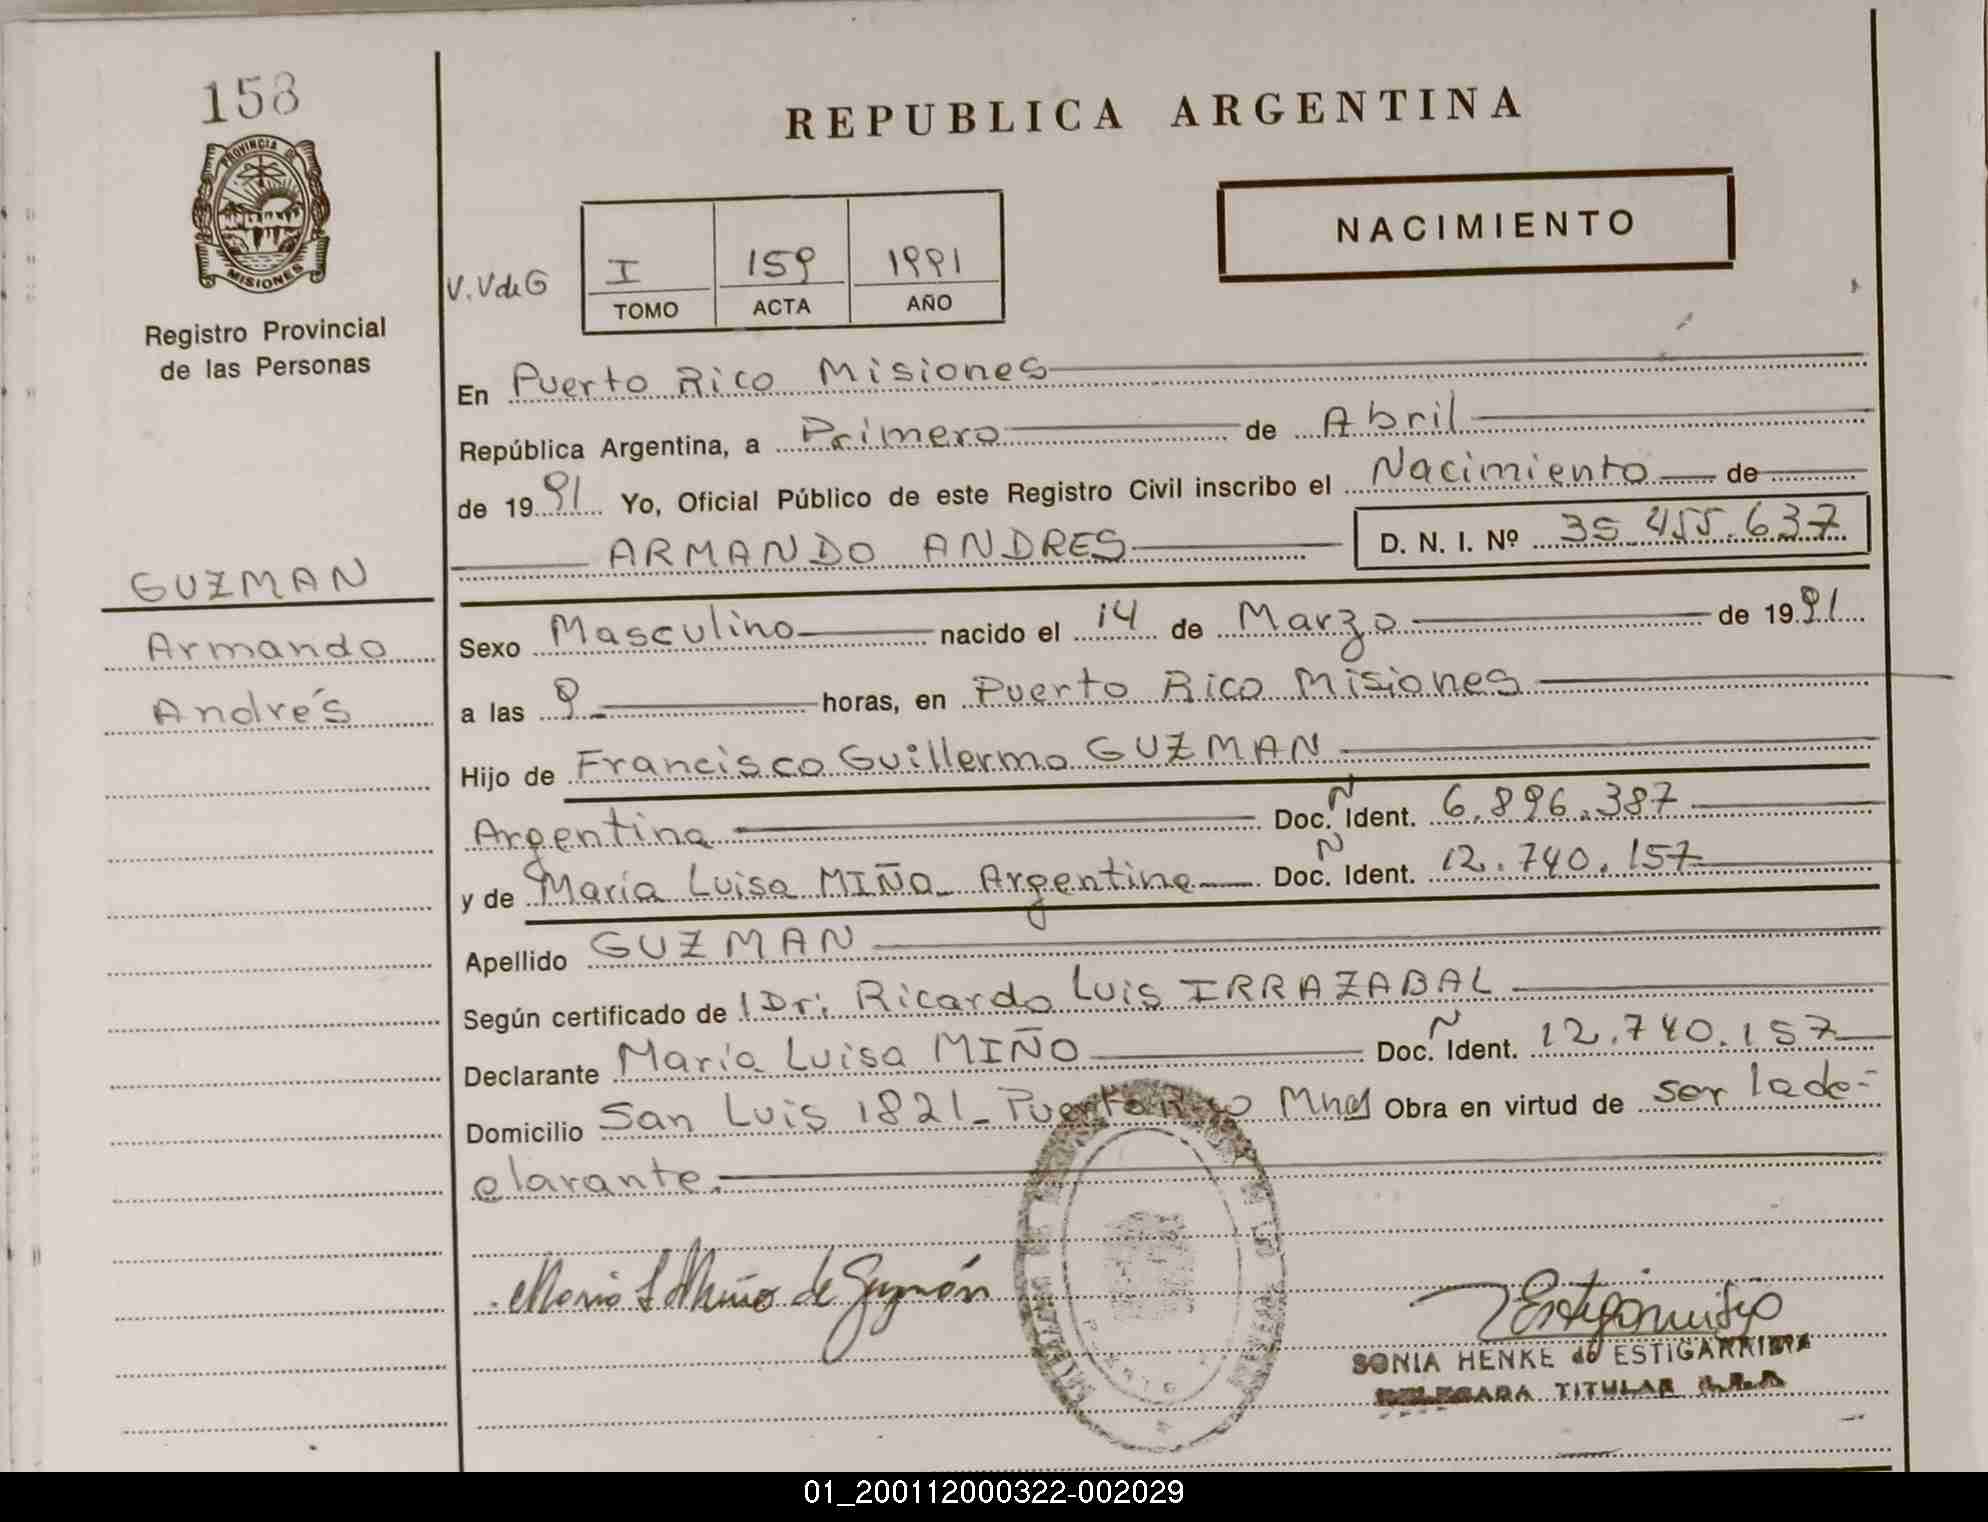 158
PROVINCIA DE
MISIONES
Registro Provincial
de las Personas
GUZMAN
Armando
Andrés
REPUBLICA ARGENTINA
NACIMIENTO
V.VdeG
I 159 1991
TOMO ACTA AÑO
En Puerto Rico Misiones
República Argentina, a Primero de Abril
de 1991 Yo, Oficial Público de este Registro Civil inscribo el Nacimiento de
ARMANDO ANDRES D. N. I. Nº 35.455.637
Sexo Masculino nacido el 14 de Marzo de 1991
a las 9 horas, en Puerto Rico Misiones
Hijo de Francisco Guillermo GUZMAN
Argentina Doc. N Ident. 6.896.387
y de María Luisa MIÑO Argentina Doc. N Ident. 12.740.157
Apellido GUZMAN
Según certificado de l Dr: Ricardo Luis IRRAZABAL
Declarante María Luisa MIÑO Doc. N Ident. 12.740.157
Domicilio San Luis 1821 - Puerto Rico Mnes Obra en virtud de ser la de-
clarante.
Maria L Miño de Guzmán
SONIA HENKE de ESTIGARRIBIA
DELEGADA TITULAR
01_200112000322-002029